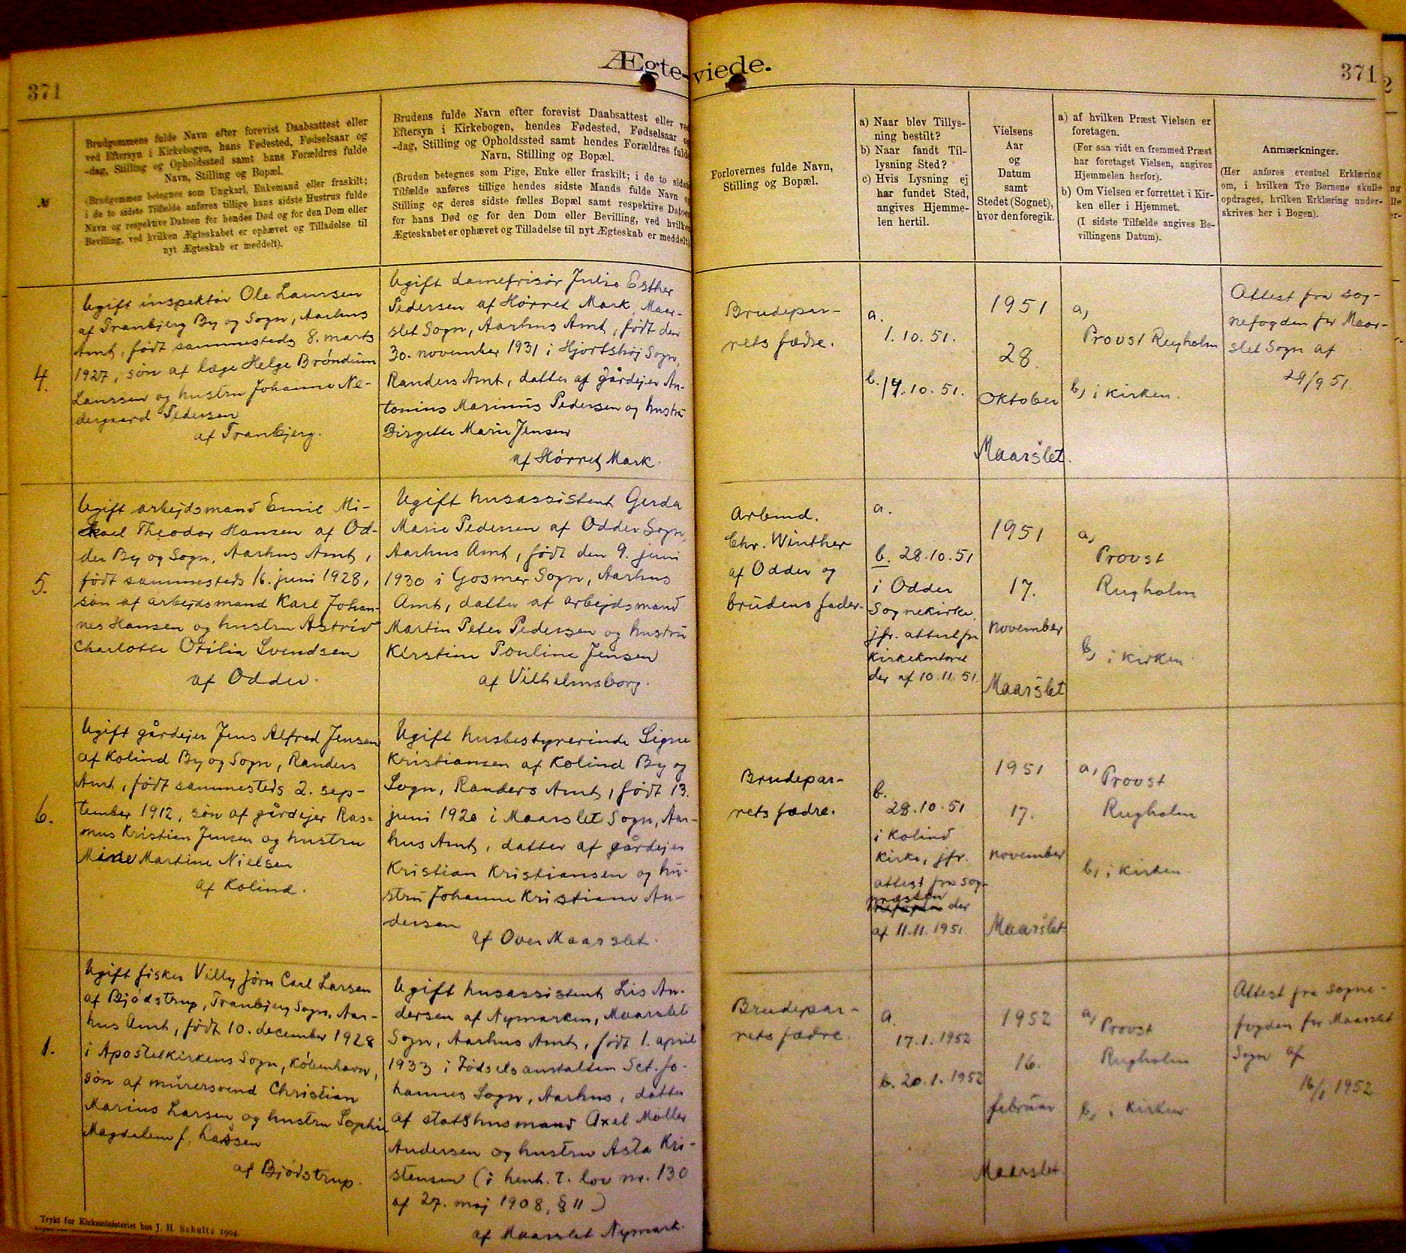 371
Ægte-viede.
371
№
Brudgommens fulde Navn efter forevist Daabsattest eller
ved Eftersyn i Kirkebogen, hans Fødested, Fødselsaar og
-dag, Stilling og Opholdssted samt hans Forældres fulde
Navn, Stilling og Bopæl.
(Brudgommen betegnes som Ungkarl, Enkemand eller fraskilt;
i de to sidste Tilfælde anføres tillige hans sidste Hustrus fulde
Navn og respektive Datoen for hendes Død og for den Dom eller
Bevilling, ved hvilken Ægteskabet er ophævet og Tilladelse til
nyt Ægteskab er meddelt).
Brudens fulde Navn efter forevist Daabsattest eller ve
Eftersyn i Kirkebogen, hendes Fødested, Fødselsaar o
-dag, Stilling og Opholdssted samt hendes Forældres fuld
Navn, Stilling og Bopæl.
(Bruden betegnes som Pige, Enke eller fraskilt; i de to sidste
Tilfælde anføres tillige hendes sidste Mands fulde Navn o
Stilling og deres sidste fælles Bopæl samt respektive Datoen
for hans Død og for den Dom eller Bevilling, ved hvilken
Ægteskabet er ophævet og Tilladelse til nyt Ægteskab er meddelt)
Forlovernes fulde Navn,
Stilling og Bopæl.
a) Naar blev Tillys-
ning bestilt?
b) Naar fandt Til-
lysning Sted?
c) Hvis Lysning ej
har fundet Sted,
angives Hjemme-
len hertil.
Vielsens
Aar
og
Datum
samt
Stedet (Sognet),
hvor den foregik.
a) af hvilken Præst Vielsen er
foretagen.
(For saa vidt en fremmed Præst
har foretaget Vielsen, angives
Hjemmelen herfor).
b) Om Vielsen er forrettet i Kir-
ken eller i Hjemmet.
(I sidste Tilfælde angives Be-
villingens Datum).
Anmærkninger.
(Her anføres eventuel Erklæring
om, i hvilken Tro Børnene skulle
opdrages, hvilken Erklæring under-
skrives her i Bogen).
4.
Ugift inspektør Ole Laursen
af Tranbjerg By og Sogn, Aarhus
Amt, født sammesteds 8. marts
1927, søn af læge Helge Brøndum
Laursen og hustru Johanne Ne-
dergaard Pedersen
af Tranbjerg.
Ugift damefrisør Julie Esther
Pedersen af Hørret Mark, Maar-
slet Sogn, Aarhus Amt, født den
30. november 1931 i Hjortshøj Sogn,
Randers Amt, datter af gårdejer An-
tonius Marinus Pedersen og hustru
Birgitte Marie Jensen
af Hørret Mark.
Brudepar-
rets fædre.
a.
1.10.51.
b. 14.10.51.
1951
28.
oktober
Maarslet.
a,
Provst Rugholm
b, i kirken.
Attest fra sog-
nefogden for Maar-
slet Sogn af
29/9 51.
5.
Ugift arbejdsmand Emil Mi-
kael Theodor Hansen af Od-
der By og Sogn, Aarhus Amt,
født sammesteds 16. juni 1928,
søn af arbejdsmand Karl Johan-
nes Hansen og hustru Astrid
Charlotte Otilie Svendsen
af Odder.
Ugift husassistent Gerda
Marie Pedersen af Odder Sogn,
Aarhus Amt, født den 9. juni
1930 i Gosmer Sogn, Aarhus
Amt, datter af arbejdsmand
Martin Peter Pedersen og hustru
Kirstine Pouline Jensen
af Vilhelmsborg.
Arbmd.
Chr. Winther
af Odder og
brudens fader.
a.
b. 28.10.51
i Odder
Sognekirke,
jfr. attest fra
kirkekontoret
der af 10.11.51.
1951
17.
november
Maarslet
a,
Provst
Rugholm
b, i kirken.
6.
Ugift gårdejer Jens Alfred Jensen
af Kolind By og Sogn, Randers
Amt, født sammesteds 2. sep-
tember 1912, søn af gårdejer Ras-
mus Kristian Jensen og hustru
Marie Martine Nielsen
af Kolind.
Ugift husbestyrerinde Signe
Kristiansen af Kolind By og
Sogn, Randers Amt, født 13.
juni 1920 i Maarslet Sogn, Aar-
hus Amt, datter af gårdejer
Kristian Kristiansen og hu-
stru Johanne Kristiane An-
dersen
af Over Maarslet.
Brudepar-
rets fædre.
b.
28.10.51
i Kolind
kirke, jfr.
attest fra sog-
præsten
der
af 11.11.1951
1951
17.
november
Maarslet
a, Provst
Rugholm
b, i kirken
1.
Ugift fisker Villy Jørn Carl Larsen
af Bjødstrup, Tranbjerg Sogn, Aar-
hus Amt, født 10. december 1928
i Apostelkirkens Sogn, København,
søn af murersvend Christian
Marius Larsen og hustru Sophie
Magdalene f. Larssen
af Bjødstrup.
Ugift husassistent Lis An-
dersen af Nymarken, Maarslet
Sogn, Aarhus Amt, født 1. april
1933 i Fødselsanstalten Sct. Jo-
hannes Sogn, Aarhus, datter
af statshusmand Axel Møller
Andersen og hustru Asta Kri-
stensen (i henh. t. lov nr. 130
af 27. maj 1908, § 11)
af Maarslet Nymark.
Brudepar-
rets fædre.
a.
17.1.1952
b. 20.1.1952
1952
16.
februar
Maarslet.
a, Provst
Rugholm
b, i kirken
Attest fra sogne-
fogden for Maarslet
Sogn af
16/1 1952
Trykt for Kirkeministeriet hos J. H. Schultz 1904.